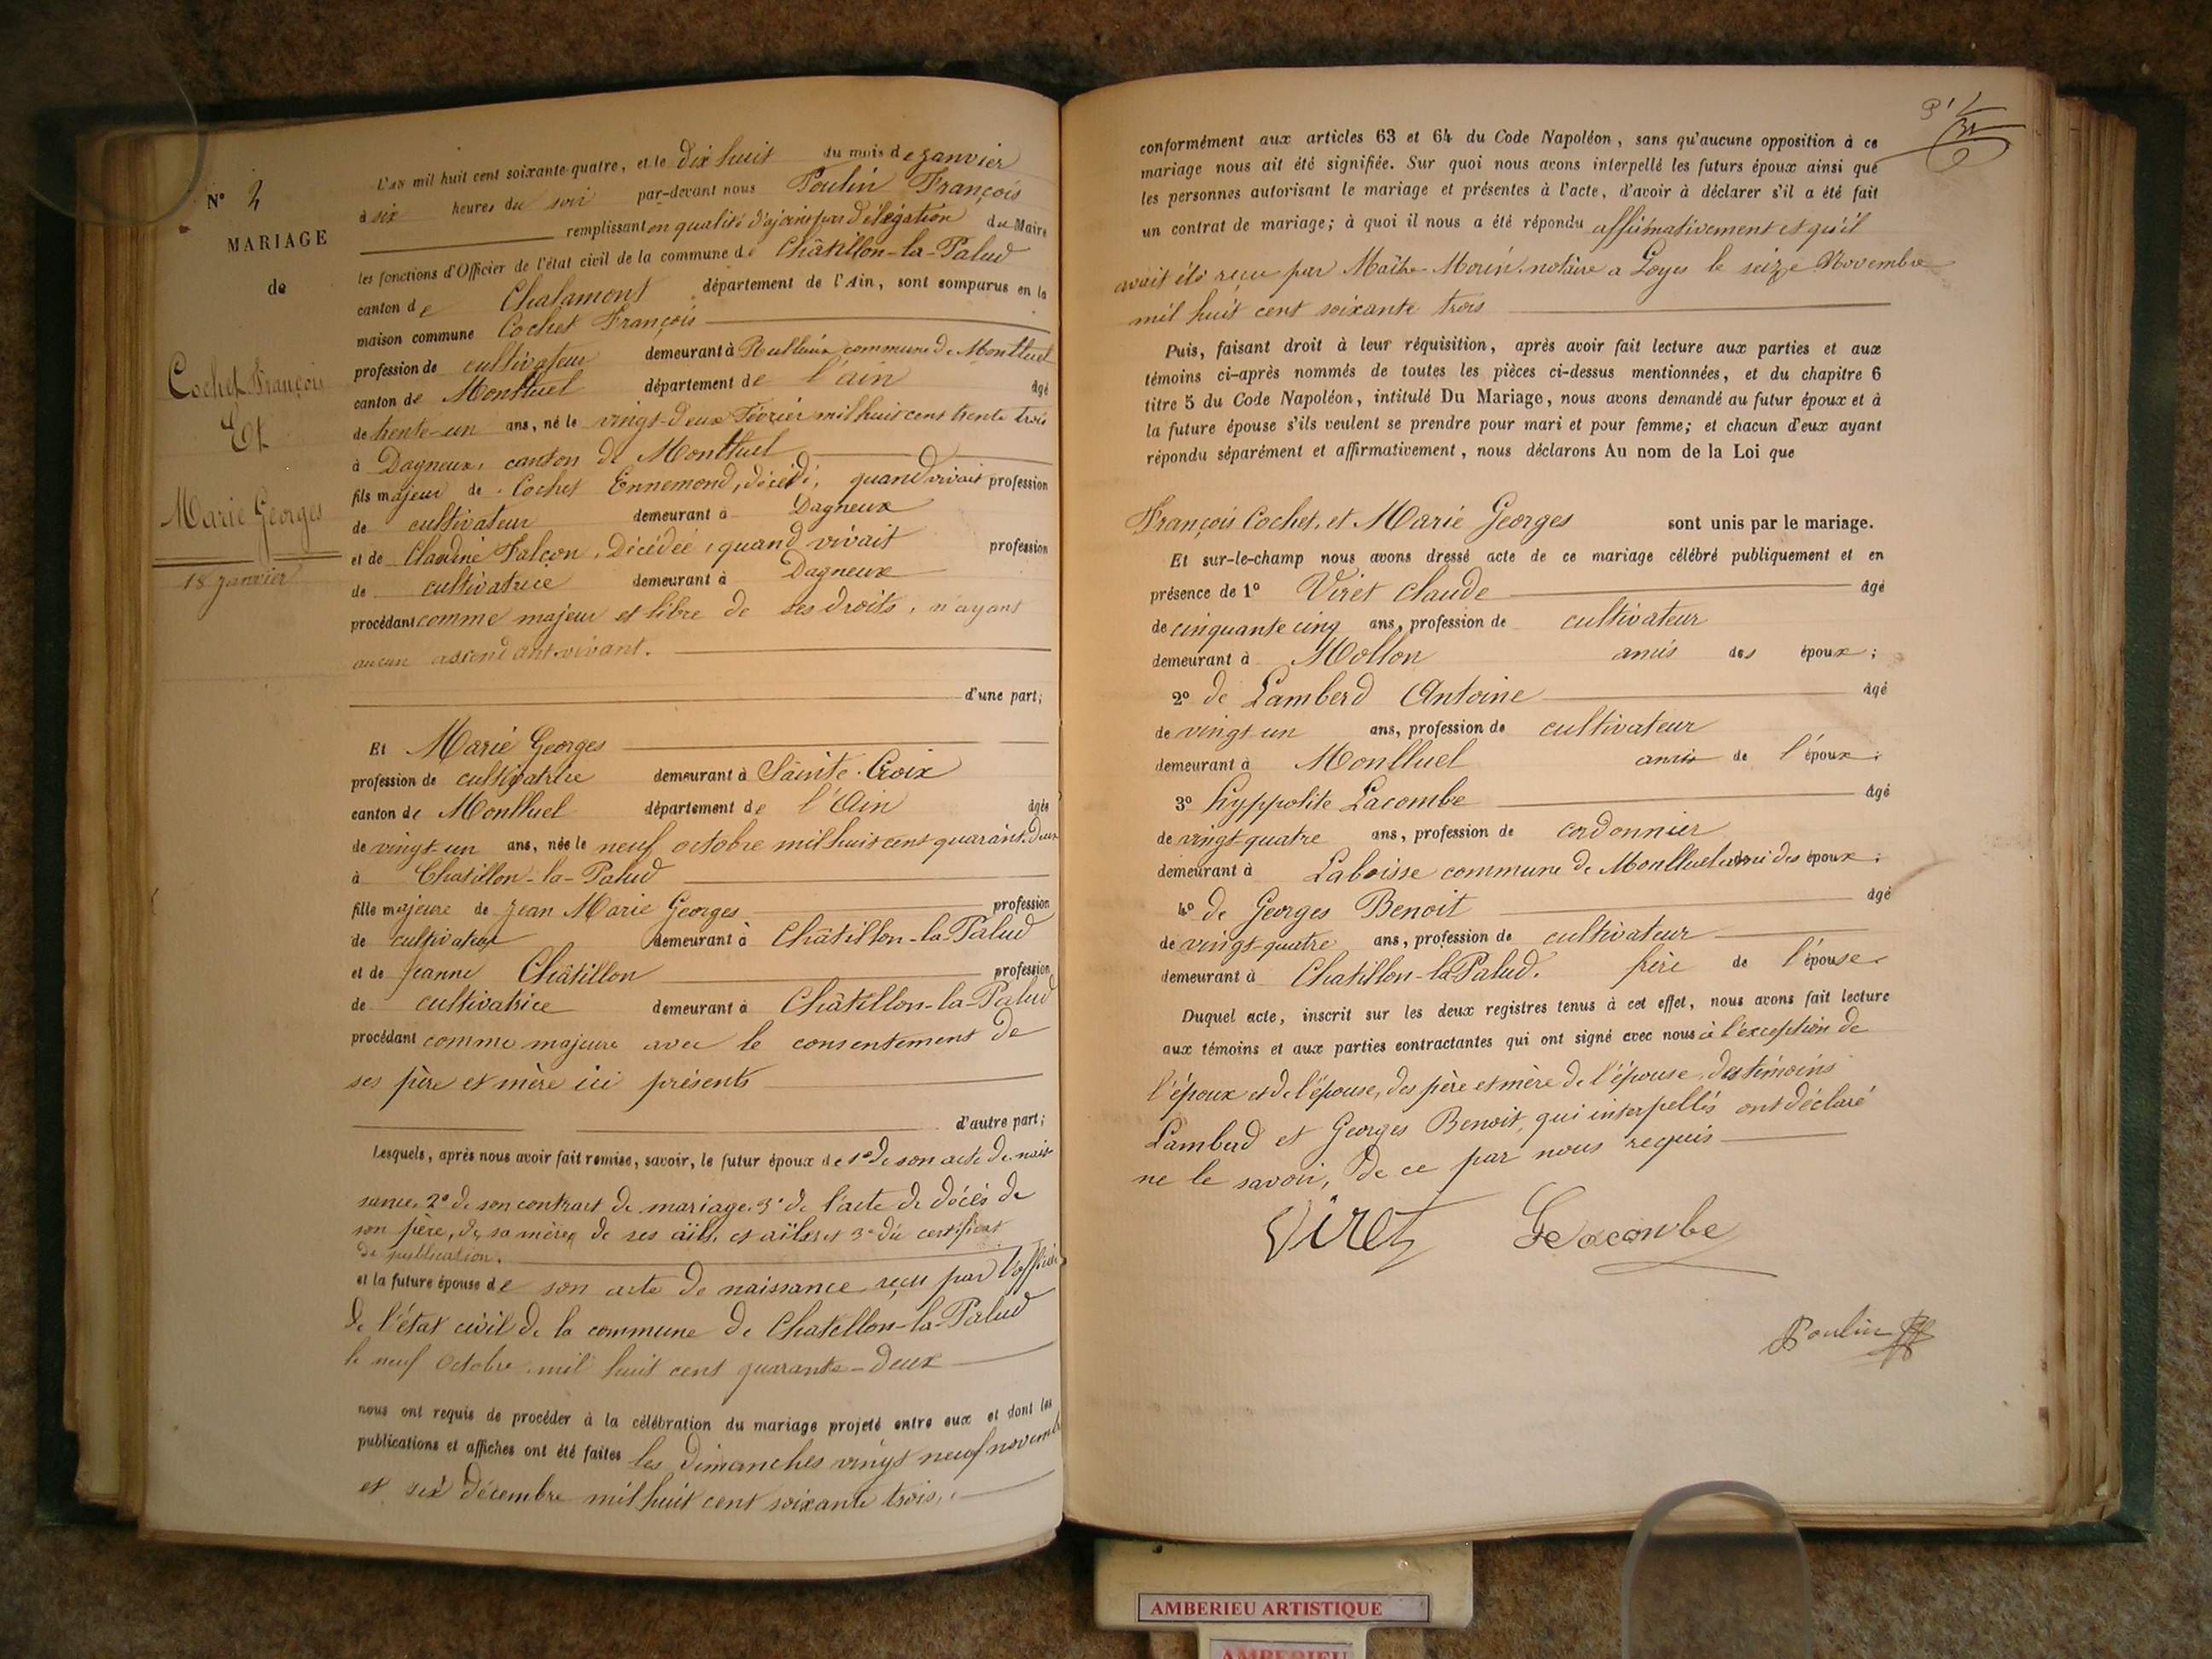 N° 2
MARIAGE
de
Cochet François
Et
Marie Georges
18 Janvier
L'an mil huit cent soixante-quatre, et le dix huit du mois de Janvier
à six heures du soir par-devant nous Poulin François
remplissant en qualité d'ajoint par délégation du Maire
les fonctions d'Officier de l'état civil de la commune de Châtillon-la-Palud
canton de Chalamont département de l'Ain, sont comparus en la
maison commune Cochet François
profession de cultivateur demeurant à commune de Montluel
canton de Montluel département de l'ain âgé
de trente-un ans, né le vingt-deux Février mil huit cent trente trois
à Dagneux, canton de Montluel
fils majeur de Cochet Ennemond, décédé, quand vivait profession
de cultivateur demeurant à Dagneux
et de Claudine Falcon, Décédée, quand vivait profession
de cultivatrice demeurant à Dagneux
procédant comme majeur et libre de ses droits, n'ayant
aucun ascendant vivant.
d'une part;
Et Marie Georges
profession de cultivatrice demeurant à Sainte-Croix
canton de Montluel département de l'Ain âgée
de vingt-un ans, née le neuf octobre mil huit cent quarante-deux
à Chatillon-la-Palud
fille majeure de Jean Marie Georges profession
de cultivateur demeurant à Châtillon-la-Palud
et de Jeanne Châtillon profession
de cultivatrice demeurant à Châtillon-la-Palud
procédant comme majeure avec le consentement de
ses père et mère ici présents
d'autre part;
Lesquels, après nous avoir fait remise, savoir, le futur époux de 1° de son acte de nais
sance, 2° de son contract de mariage, 3° de l'acte de décès de
son père, de sa mère, de ses aïls, et aïles et 3° du certificat
de publication.
et la future épouse de son acte de naissance reçu par l'officier
de l'état civil de la commune de Chatillon-la-Palud
le neuf Octobre mil huit cent quarante-deux
nous ont requis de procéder à la célébration du mariage projeté entre eux et dont les
publications et affiches ont été faites les dimanches vingt neuf novembre
et six décembre mil huit cent soixante trois,
conformément aux articles 63 et 64 du Code Napoléon, sans qu'aucune opposition à ce
mariage nous ait été signifiée. Sur quoi nous avons interpellé les futurs époux ainsi que
les personnes autorisant le mariage et présentes à l'acte, d'avoir à déclarer s'il a été fait
un contrat de mariage; à quoi il nous a été répondu affirmativement et qu'il
avait été reçu par Maître Morin notaire a Loyes le seize Novembre
mil huit cent soixante trois
Puis, faisant droit à leur réquisition, après avoir fait lecture aux parties et aux
témoins ci-après nommés de toutes les pièces ci-dessus mentionnées, et du chapitre 6
titre 5 du Code Napoléon, intitulé Du Mariage, nous avons demandé au futur époux et à
la future épouse s'ils veulent se prendre pour mari et pour femme; et chacun d'eux ayant
répondu séparément et affirmativement, nous déclarons Au nom de la Loi que
François Cochet, et Marie Georges sont unis par le mariage.
Et sur-le-champ nous avons dressé acte de ce mariage célébré publiquement et en
présence de 1° Viret Claude âgé
de cinquante cinq ans, profession de cultivateur
demeurant à Mollon amis des époux;
2° de Lamberd Antoine âgé
de vingt-un ans, profession de cultivateur
demeurant à Montluel amis de l'époux;
3° hyppolite Lacombe âgé
de vingt-quatre ans, profession de cordonnier
demeurant à Laboisse commune de Montluel ami des époux;
4° de Georges Benoit âgé
de vingt-quatre ans, profession de cultivateur
demeurant à Chatillon-la-Palud. frère de l'épouse
Duquel acte, inscrit sur les deux registres tenus à cet effet, nous avons fait lecture
aux témoins et aux parties contractantes qui ont signé avec nous à l'exception de
l'époux et de l'épouse, des père et mère de l'épouse, des témoins
Lamberd et Georges Benoit, qui interpellés ont déclaré
ne le savoir, de ce par nous requis
Viret Lacombe
Poulin
AMBERIEU ARTISTIQUE
AMBERIEU